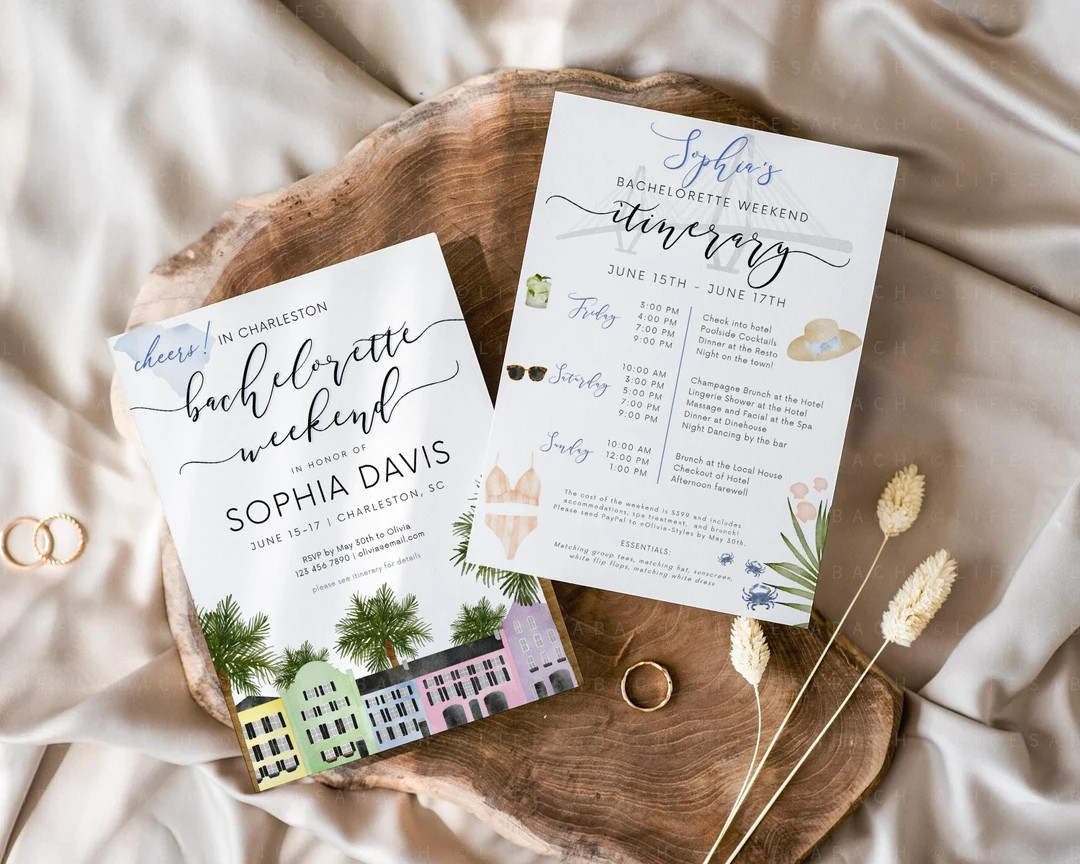 cheers! IN CHARLESTON
bachelorette
weekend
IN HONOR OF
SOPHIA DAVIS
JUNE 15-17 | CHARLESTON, SC
RSVP by May 30th to Olivia
123 456 7890 | olivia@email.com
please see itinerary for details
Sophia's
BACHELORETTE WEEKEND
itinerary
JUNE 15TH - JUNE 17TH
Friday
3:00 PM Check into hotel
4:00 PM Poolside Cocktails
7:00 PM Dinner at the Resto
9:00 PM Night on the town!
Saturday
10:00 AM Champagne Brunch at the Hotel
3:00 PM Lingerie Shower at the Hotel
5:00 PM Massage and Facial at the Spa
7:00 PM Dinner at Dinehouse
9:00 PM Night Dancing by the bar
Sunday
10:00 AM Brunch at the Local House
12:00 PM Checkout of Hotel
1:00 PM Afternoon farewell
The cost of the weekend is $399 and includes
accommodations, spa treatment, and brunch!
Please send PayPal to @Olivia-Styles by May 30th.
ESSENTIALS:
Matching group tees, matching hat, sunscreen,
white flip flops, matching white dress